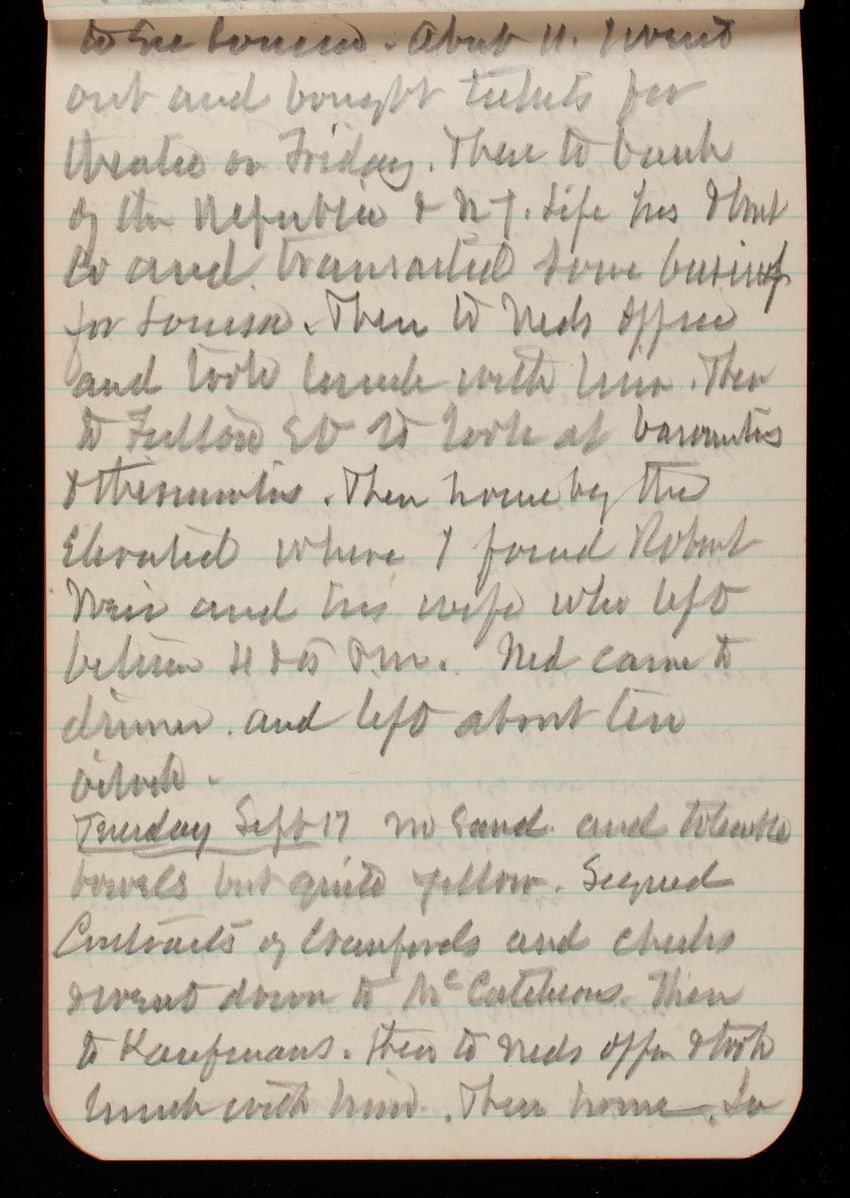 to see Louisa. About 11. I went
out and bought tickets for
theatre on Friday. Then to bank
of the Republic & N.Y. Life Ins & Trust
Co and transacted some business
for Louisa. Then to Neds office
and took lunch with him. Then
to Fulton St to look at barometers
& thermometers. Then home by the
Elevated where I found Robert
Weir and his wife who left
between 4 & 5 P.m. Ned came to
dinner. and left about ten
oclock.
Tuesday Sept 17 No Sand. and tolerable
bowels but quite yellow. Signed
Contracts of Cranfords and checks
& went down to McCutcheons. Then
to Kaufmans. then to Neds office & took
lunch with him. Then home. In